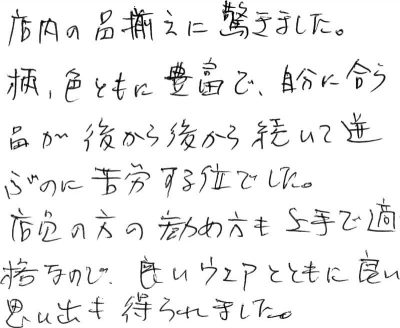 店内の品揃えに驚きました。
柄、色ともに豊富で、自分に合う
品が後から後から続いて選
ぶのに苦労する位でした。
店員の方の勧め方も上手で適
格なので、良いウェアとともに良い
思い出も得られました。